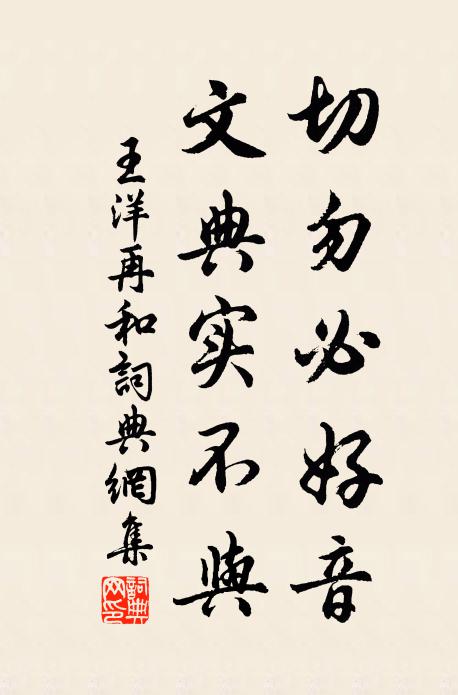 切勿必好音
文典实不與
王洋再和詞典網集
詞典
网印